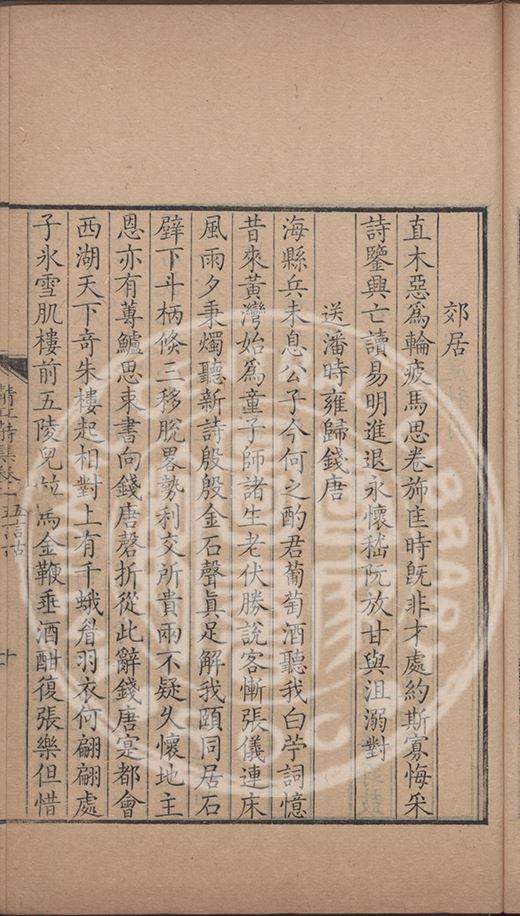 郊居
直木惡爲輪疲馬思卷斾匡時旣非才處約斯寡悔采
詩鑒興亡讀易明進退永懷嵇阮放甘與沮溺對
送潘時雍歸錢唐
海縣兵未息公子今何之酌君葡萄酒聽我白苧詞憶
昔來黃灣始爲童子師諸生老伏勝說客慚張儀連床
風雨夕秉燭聽新詩殷殷金石聲眞足解我頤同居石
壁下斗柄倏三移脫畧勢利交所貴兩不疑久懷地主
恩亦有蓴鱸思束書向錢唐磬折從此辭錢唐寔都會
西湖天下奇朱樓起相對上有千蛾眉羽衣何翩翩處
子氷雪肌樓前五陵兒 馬金鞭垂酒酣復張樂但惜
五言古
十